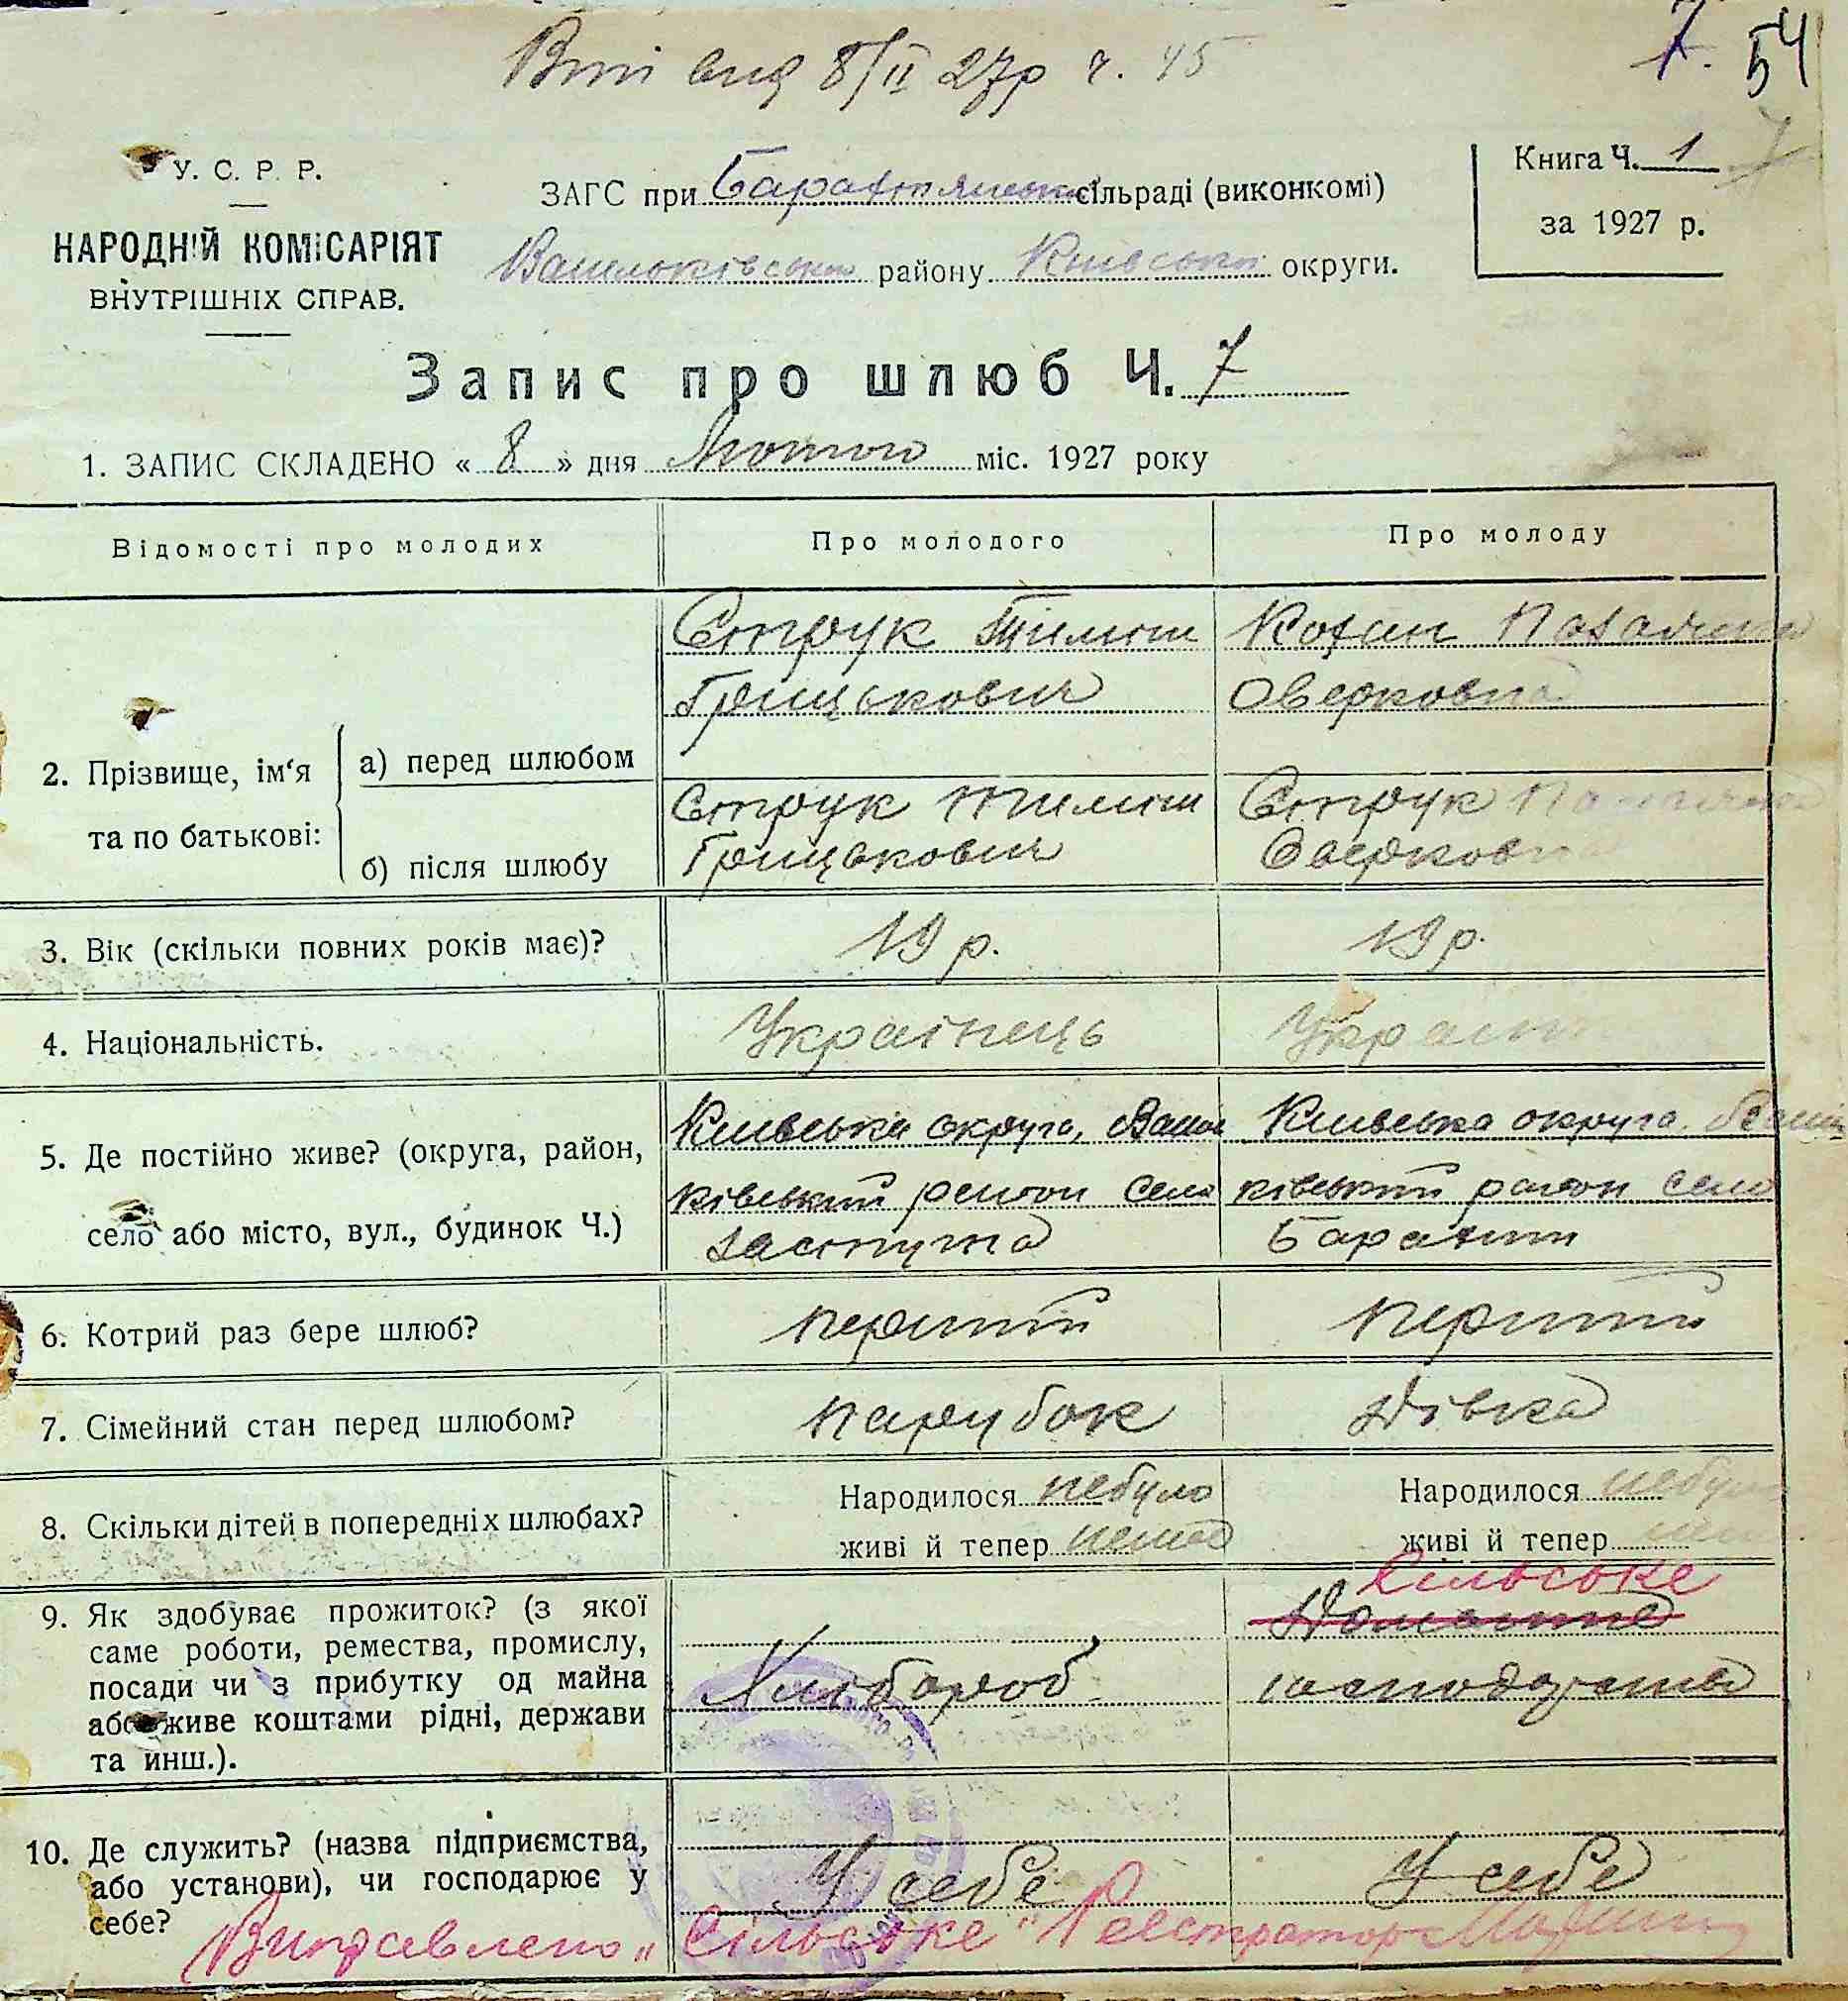 Витяг вид 8/II 27р ч. 45
7. 54
У. С. Р. Р.
НАРОДНІЙ КОМІСАРІЯТ
ВНУТРІШНІХ СПРАВ.
ЗАГС при Барахтянській сільраді (виконкомі)
Васильківського району Київської округи.
Книга Ч. 1
за 1927 р.
Запис про шлюб Ч. 7
1. ЗАПИС СКЛАДЕНО « 8 » дня Лютого міс. 1927 року
Відомості про молодих
Про молодого
Про молоду
2. Прізвище, ім‘я та по батькові:
а) перед шлюбом
Струк Тиміш
Грицькович
Оверковна
б) після шлюбу
Струк Тиміш
Грицькович
Струк
Оверковна
3. Вік (скільки повних років має)?
19 р.
19 р.
4. Національність.
Українець
Україн
5. Де постійно живе? (округа, район,
село або місто, вул., будинок Ч.)
Київська округа, Василь
ківський район село
Застугна
Київська округа. Василь
ківський район село
Барахти
6. Котрий раз бере шлюб?
перший
перший
7. Сімейний стан перед шлюбом?
парубок
Дівка
8. Скільки дітей в попередніх шлюбах?
Народилося небуло
живі й тепер нема
Народилося небуло
живі й тепер нема
9. Як здобуває прожиток? (з якої
саме роботи, ремества, промислу,
посади чи з прибутку од майна
або живе коштами рідні, держави
та инш.).
Хлібороб
Сільське
Домашнє
господарство
10. Де служить? (назва підприємства,
або установи), чи господарює у
себе?
У себе
У себе
Виправлено „Сільське" Реєстратор